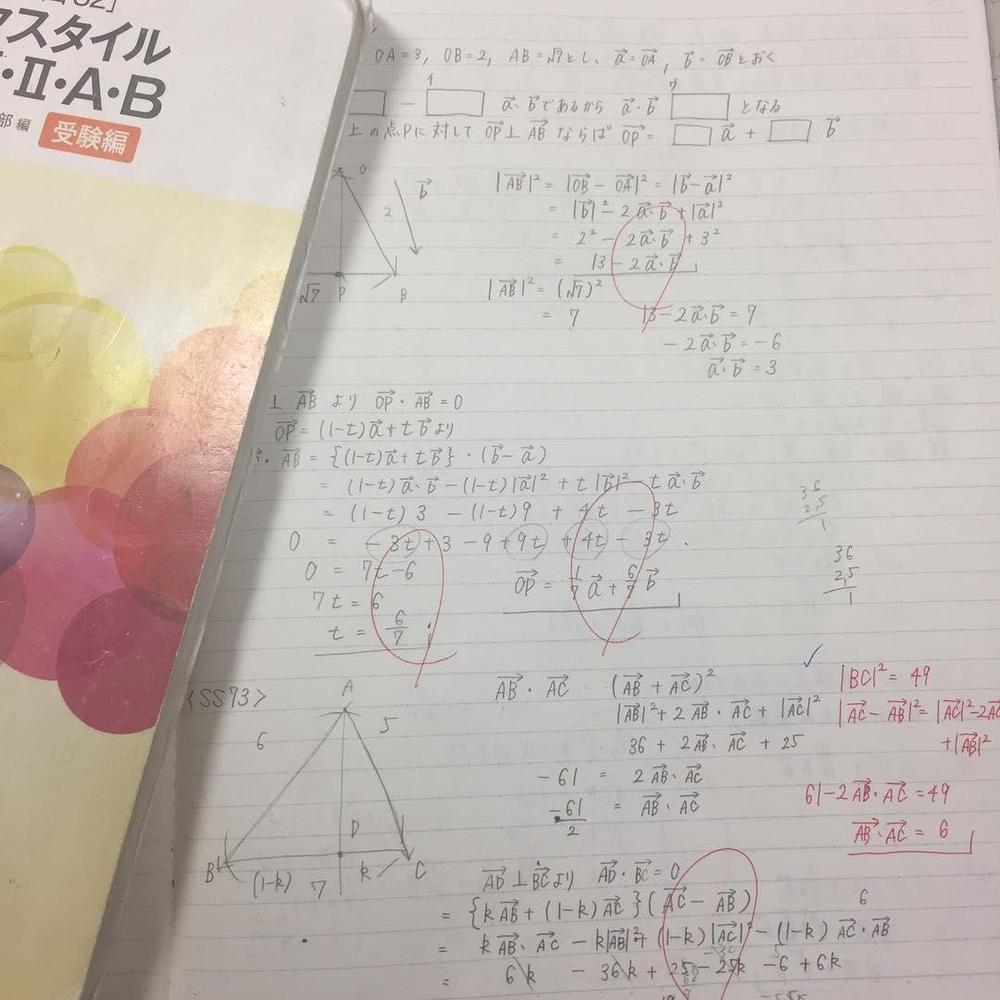 スタイル
・Ⅱ・A・B
部 編 受験編
OA=3, OB=2, AB=√7とし、 a⃗=OA⃗, b⃗=OB⃗とおく
− a⃗・b⃗であるから a⃗・b⃗ となる
上の点Pに対して OP⃗⊥AB⃗ ならば OP⃗= a⃗ + b⃗
O
b⃗
2
√7 P B
|AB⃗|² = |OB⃗−OA⃗|² = |b⃗−a⃗|²
= |b⃗|²−2a⃗・b⃗+|a⃗|²
= 2²−2a⃗・b⃗+3²
= 13−2a⃗・b⃗
|AB⃗|² = (√7)²
= 7 13−2a⃗・b⃗=7
−2a⃗・b⃗=−6
a⃗・b⃗=3
⊥ AB⃗ より OP⃗・AB⃗=0
OP⃗=(1−t)a⃗+tb⃗より
・AB⃗={(1−t)a⃗+tb⃗}・(b⃗−a⃗)
= (1−t)a⃗・b⃗−(1−t)|a⃗|²+t|b⃗|²−ta⃗・b⃗
= (1−t)3 −(1−t)9 + 4t −3t
0 = −3t+3−9+9t+4t−3t
0 = 7t−6
7t = 6
t = 6/7
OP⃗=1/7 a⃗+6/7 b⃗
36
25
1
36
25
1
<SS73>
A
6 5
D
B (1−k) 7 k C
AB⃗・AC⃗ = (AB⃗+AC⃗)²
|AB⃗|²+2AB⃗・AC⃗+|AC⃗|²
36 + 2AB⃗・AC⃗ + 25
−61 = 2AB⃗・AC⃗
−61/2 = AB⃗・AC⃗
|BC⃗|²=49
|AC⃗−AB⃗|²=|AC⃗|²−2AC
+|AB⃗|²
61−2AB⃗・AC⃗=49
AB⃗・AC⃗ = 6
AD⃗⊥BC⃗より AD⃗・BC⃗=0
= {kAB⃗+(1−k)AC⃗}(AC⃗−AB⃗)
6
= kAB⃗・AC⃗−k|AB⃗|²+(1−k)|AC⃗|²−(1−k)AC⃗・AB⃗
= 6k −36k+25−25k −6+6k